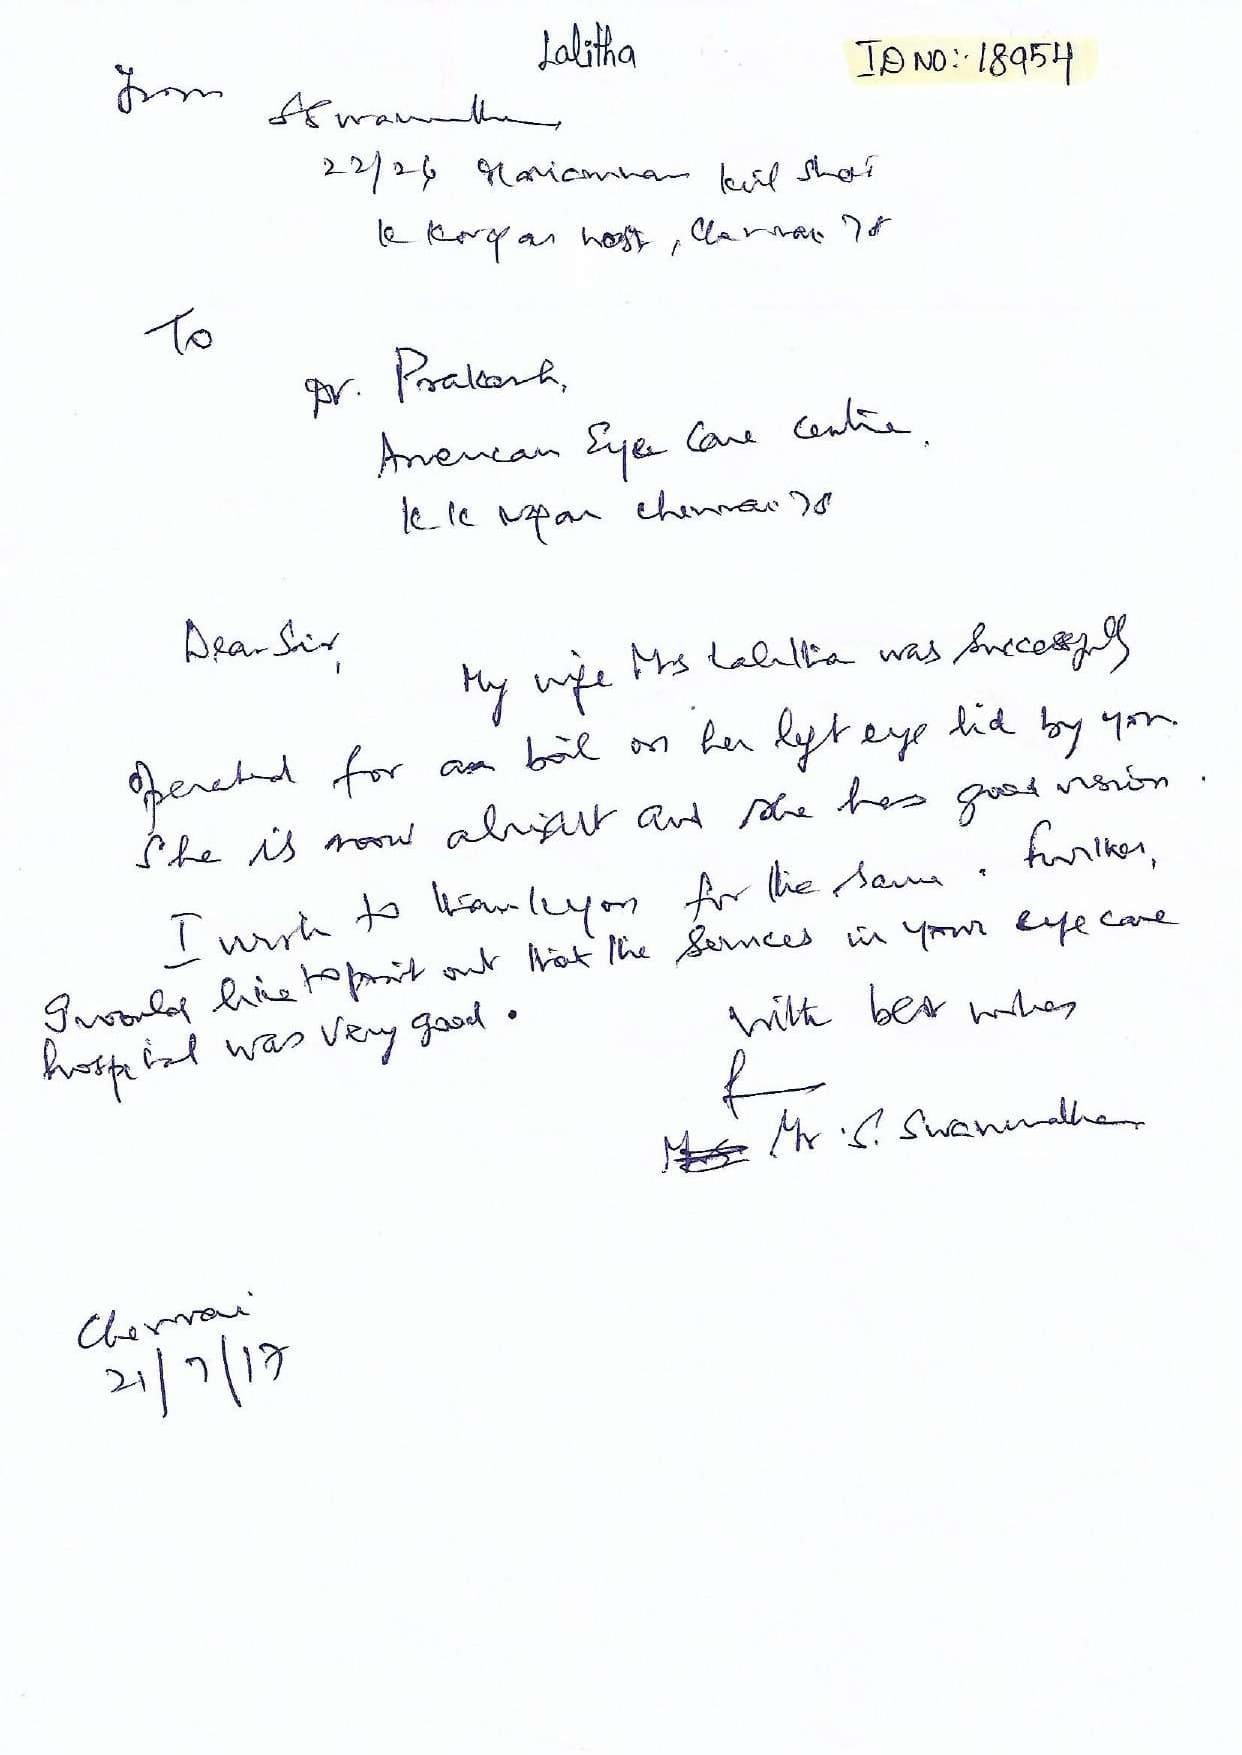 Lalitha
ID NO:- 18954
From
S Swaminathan,
22/26 Mariamman Koil Street
K K Nagar West, Chennai 78
To
Dr. Prakash,
American Eye Care Centre,
K.K Nagar Chennai 78
Dear Sir,
My wife Mrs Lalitha was successfully
operated for an boil on her left eye lid by you.
She is now alright and she has good vision.
I wish to thank you for the same. Further,
I would like to point out that the services in your eye care
hospital was very good.
With best wishes
Mr S.
Chennai
21/7/17